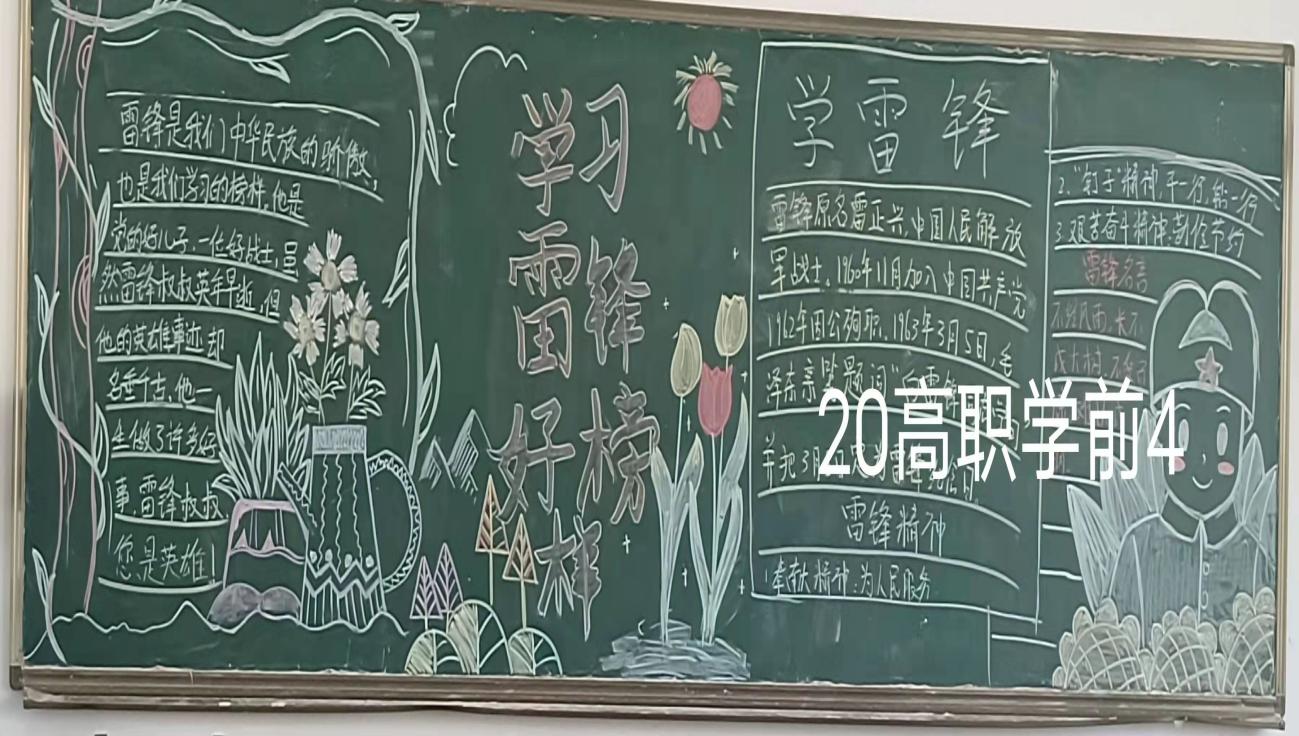 雷锋是我们中华民族的骄傲,
也是我们学习的榜样,他是
党的好儿子,一位好战士,虽
然雷锋叔叔英年早逝,但
他的英雄事迹却
名垂千古,他一
生做了许多好
事,雷锋叔叔,
您是英雄!
学习
雷锋
好榜
样
学雷锋
雷锋原名雷正兴,中国人民解放
军战士,1960年11月加入中国共产党
1962年因公殉职,1963年3月5日,毛
泽东亲笔题词"
并把3月
雷锋精神
1.奉献精神:为人民服务
2."钉子"精神,干一行,钻一行
3.艰苦奋斗精神:勤俭节约
雷锋名言
不经风雨,长不
成大树,不
20高职学前4